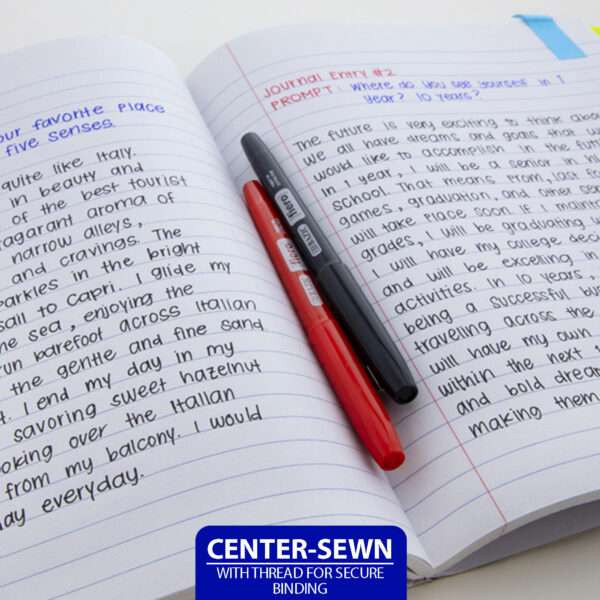 our favorite Place
five senses.
quite like Italy.
in beauty and
of the best tourist
aroma of
narrow alleys,
and cravings. The
in the bright
sail to Capri. I glide my
sea, enjoying the
barefoot across Italian
the gentle and fine sand
I end my day in my
savoring sweet hazelnut
over the Italian
from my balcony. I would
everyday.
Journal Entry #2
PROMPT: Where do you see yourself in 1
Year? 10 Years?
The future is very exciting to think abou
we all have dreams and goals that w
would like to accomplish in the futu
in 1 year, I will be a senior in hi
school. That means prom, last fo
games, graduation, and other se
will take place soon. If I maint
grades, I will be graduating
I will have my college dec
and will be excelling in
activities. In 10 years,
being a successful bu
traveling across the
will have my own
within the next
and bold dream
making them
fiero
CENTER-SEWN
WITH THREAD FOR SECURE
BINDING